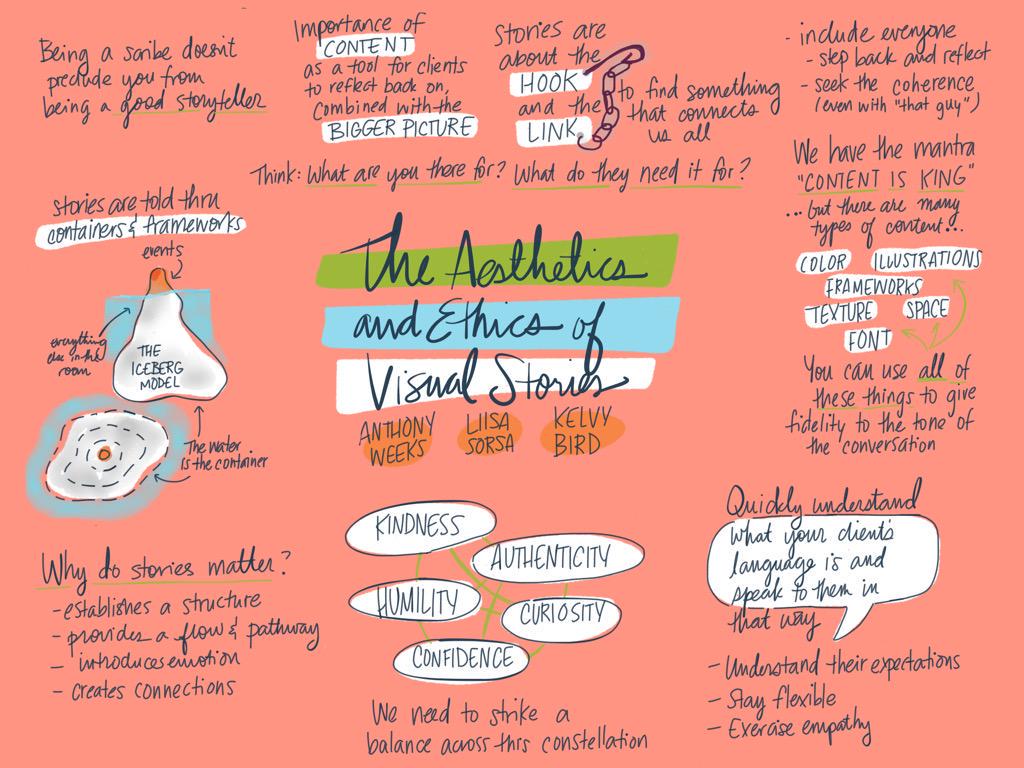 Being a scribe doesn't
preclude you from
being a good storyteller
Importance of
CONTENT
as a tool for clients
to reflect back on,
combined with the
BIGGER PICTURE
Stories are
about the
HOOK
and the
LINK
to find something
that connects
us all
- include everyone
- step back and reflect
- seek the coherence
(even with "that guy")
Think: What are you there for? What do they need it for?
We have the mantra
"CONTENT IS KING"
...but there are many
types of content...
COLOR ILLUSTRATIONS
FRAMEWORKS
TEXTURE SPACE
FONT
You can use all of
these things to give
fidelity to the tone of
the conversation
stories are told thru
containers & frameworks
events
everything
else in the
room
THE
ICEBERG
MODEL
The water
is the container
The Aesthetics
and Ethics of
Visual Stories
ANTHONY
WEEKS
LIISA
SORSA
KELVY
BIRD
Why do stories matter?
- establishes a structure
- provides a flow & pathway
- introduces emotion
- creates connections
KINDNESS
AUTHENTICITY
HUMILITY
CURIOSITY
CONFIDENCE
We need to strike a
balance across this constellation
Quickly understand
what your client's
language is and
speak to them in
that way
- Understand their expectations
- Stay flexible
- Exercise empathy